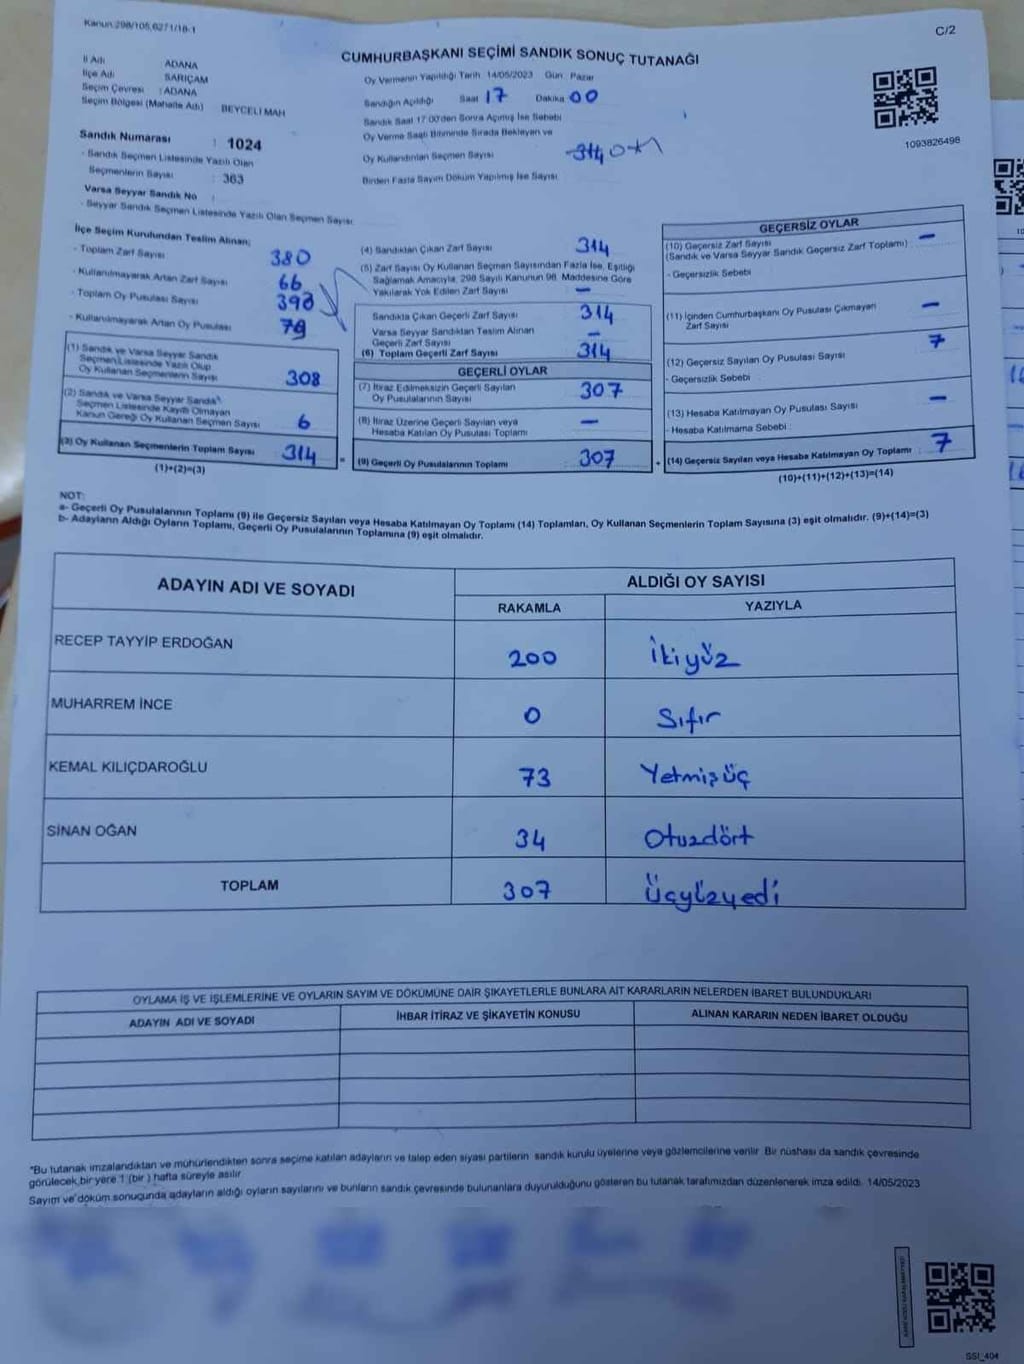 Kanun:298/105,6271/18-1
C/2
CUMHURBAŞKANI SEÇİMİ SANDIK SONUÇ TUTANAĞI
İl Adı ADANA
İlçe Adı SARIÇAM
Seçim Çevresi : ADANA
Seçim Bölgesi (Mahalle Adı) BEYCELİ MAH
Oy Vermenin Yapıldığı Tarih 14/05/2023 Gün Pazar
Sandığın Açıldığı Saat 17 Dakika 00
Sandık Saat 17:00'den Sonra Açımış İse Sebebi
Oy Verme Saati Bitiminde Sırada Bekleyen ve
Oy Kullandırılan Seçmen Sayısı 314
Birden Fazla Sayım Döküm Yapılmış İse Sayısı
1093826498
Sandık Numarası : 1024
- Sandık Seçmen Listesinde Yazılı Olan
Seçmenlerin Sayısı : 363
Varsa Seyyar Sandık No :
- Seyyar Sandık Seçmen Listesinde Yazılı Olan Seçmen Sayısı
İlçe Seçim Kurulundan Teslim Alınan;
- Toplam Zarf Sayısı 380
- Kullanılmayarak Artan Zarf Sayısı 66
- Toplam Oy Pusulası Sayısı
- Kullanılmayarak Artan Oy Pusulası
(1) Sandık ve Varsa Seyyar Sandık
Seçmen Listesinde Yazılı Olup
Oy Kullanan Seçmenlerin Sayısı 308
(2) Sandık ve Varsa Seyyar Sandık
Seçmen Listesinde Kayıtlı Olmayan
Kanun Gereği Oy Kullanan Seçmen Sayısı 6
(3) Oy Kullanan Seçmenlerin Toplam Sayısı 314
(1)+(2)=(3)
(4) Sandıktan Çıkan Zarf Sayısı 314
(5) Zarf Sayısı Oy Kullanan Seçmen Sayısından Fazla İse, Eşitliği
Sağlamak Amacıyla, 298 Sayılı Kanunun 98. Maddesine Göre
Yakılarak Yok Edilen Zarf Sayısı –
Sandıkta Çıkan Geçerli Zarf Sayısı 314
Varsa Seyyar Sandıktan Teslim Alınan
Geçerli Zarf Sayısı –
(6) Toplam Geçerli Zarf Sayısı 314
GEÇERLİ OYLAR
(7) İtiraz Edilmeksizin Geçerli Sayılan
Oy Pusulalarının Sayısı 307
(8) İtiraz Üzerine Geçerli Sayılan veya
Hesaba Katılan Oy Pusulası Toplamı –
= (9) Geçerli Oy Pusulalarının Toplamı 307
GEÇERSİZ OYLAR
(10) Geçersiz Zarf Sayısı –
(Sandık ve Varsa Seyyar Sandık Geçersiz Zarf Toplamı)
- Geçersizlik Sebebi
(11) İçinden Cumhurbaşkanı Oy Pusulası Çıkmayan
Zarf Sayısı –
(12) Geçersiz Sayılan Oy Pusulası Sayısı 7
- Geçersizlik Sebebi
(13) Hesaba Katılmayan Oy Pusulası Sayısı –
- Hesaba Katılmama Sebebi
+ (14) Geçersiz Sayılan veya Hesaba Katılmayan Oy Toplamı : 7
(10)+(11)+(12)+(13)=(14)
NOT:
a- Geçerli Oy Pusulalarının Toplamı (9) ile Geçersiz Sayılan veya Hesaba Katılmayan Oy Toplamı (14) Toplamları, Oy Kullanan Seçmenlerin Toplam Sayısına (3) eşit olmalıdır. (9)+(14)=(3)
b- Adayların Aldığı Oyların Toplamı, Geçerli Oy Pusulalarının Toplamına (9) eşit olmalıdır.
ADAYIN ADI VE SOYADI ALDIĞI OY SAYISI
RAKAMLA YAZIYLA
RECEP TAYYİP ERDOĞAN 200 İkiyüz
MUHARREM İNCE 0 Sıfır
KEMAL KILIÇDAROĞLU 73 Yetmişüç
SİNAN OĞAN 34 Otuzdört
TOPLAM 307 Üçyüzyedi
OYLAMA İŞ VE İŞLEMLERİNE VE OYLARIN SAYIM VE DÖKÜMÜNE DAİR ŞİKAYETLERLE BUNLARA AİT KARARLARIN NELERDEN İBARET BULUNDUKLARI
ADAYIN ADI VE SOYADI İHBAR İTİRAZ VE ŞİKAYETİN KONUSU ALINAN KARARIN NEDEN İBARET OLDUĞU
*Bu tutanak imzalandıktan ve mühürlendikten sonra seçime katılan adayların ve talep eden siyasi partilerin sandık kurulu üyelerine veya gözlemcilerine verilir. Bir nüshası da sandık çevresinde
görülecek bir yere 1 (bir ) hafta süreyle asılır.
Sayım ve döküm sonucunda adayların aldığı oyların sayılarını ve bunların sandık çevresinde bulunanlara duyurulduğunu gösteren bu tutanak tarafımızdan düzenlenerek imza edildi. 14/05/2023
SSI_404